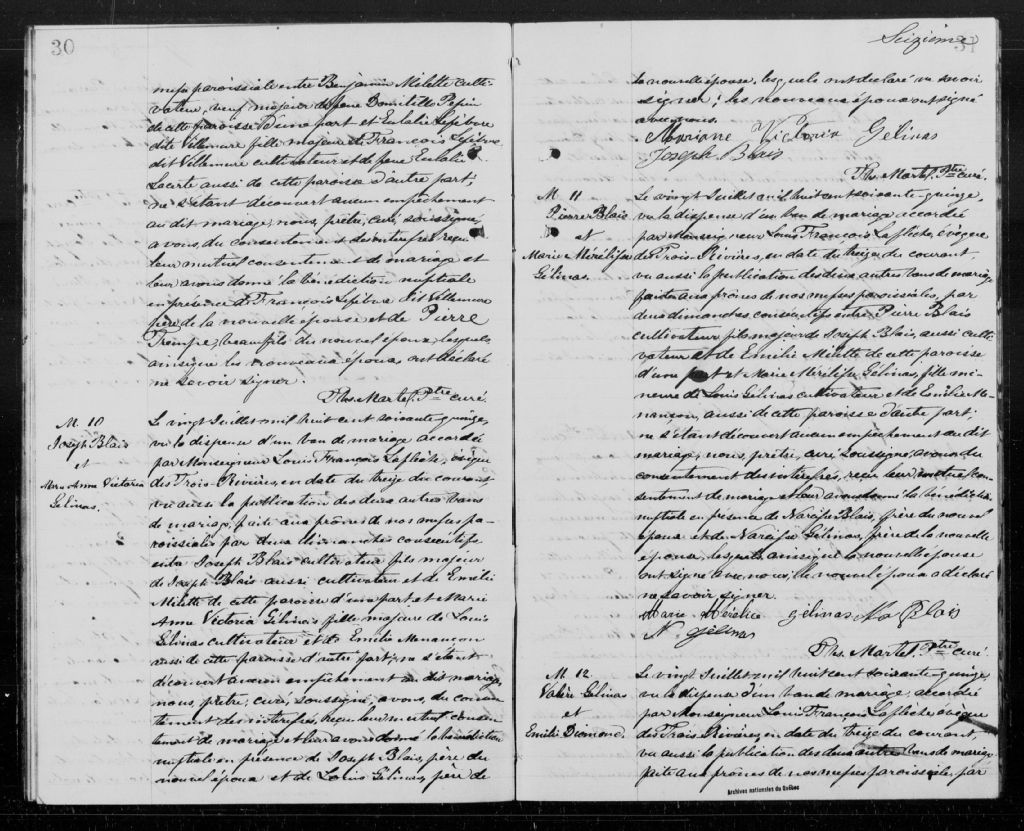 30
messe paroissiale entre Benjamin Milette culti-
vateur, veuf majeur de feue Domitille Pepin
de cette paroisse d'une part et Eulalie Lefebvre
dite Villemure fille majeure de François Lefebvre
dit Villemure cultivateur et de feue Eulalie
Lacerte aussi de cette paroisse d'autre part;
ne s'étant découvert aucun empêchement
au dit mariage, nous, prêtre, curé, soussigné,
avons, du consentement des intéressés, reçu
leur mutuel consentement de mariage et
leur avons donné la bénédiction nuptiale
en présence de François Lefebvre dit Villemure
père de la nouvelle épouse et de Pierre
beaufils du nouvel époux, lesquels
ainsi que les nouveaux époux, ont déclaré
ne savoir signer.
Ths. Martel, Ptre curé.
M. 10
Joseph Blais
et
Marie Anne Victoria
Gélinas.
Le vingt Juillet mil huit cent soixante-quinze,
vu la dispense d'un ban de mariage accordée
par Monseigneur Louis François Laflèche, évêque
des Trois-Rivières, en date du treize du courant,
vu aussi la publication des deux autres bans
de mariage, faite aux prônes de nos messes pa-
roissiales par deux dimanches consécutifs
entre Joseph Blais cultivateur fils majeur
de Joseph Blais aussi cultivateur et de Emélie
Milette de cette paroisse d'une part et Marie
Anne Victoria Gélinas fille majeure de Louis
Gélinas cultivateur et de Emélie Menançon
aussi de cette paroisse d'autre part; ne s'étant
découvert aucun empêchement au dit mariage,
nous, prêtre, curé, soussigné, avons, du consen-
tement des intéressés, reçu leur mutuel consen-
tement de mariage et leur avons donné la bénédiction
nuptiale en présence de Joseph Blais, père du
nouvel époux et de Louis Gélinas, père de
Seizième
31
la nouvelle épouse, lesquels ont déclaré ne savoir
signer; les nouveaux époux ont signé
avec nous.
Marianne Victoria Gelinas
Joseph Blais
Ths. Martel, Ptre curé.
M. 11
Pierre Blais
et
Marie Mérélise
Gélinas.
Le vingt Juillet mil huit cent soixante-quinze,
vu la dispense d'un ban de mariage accordée
par Monseigneur Louis François Laflèche, évêque
des Trois-Rivières, en date du treize du courant,
vu aussi la publication des deux autres bans de mariage
faite aux prônes de nos messes paroissiales, par
deux dimanches consécutifs entre Pierre Blais
cultivateur fils majeur de Joseph Blais, aussi culti-
vateur et de Emélie Milette de cette paroisse
d'une part et Marie Mérélise Gélinas, fille mi-
neure de Louis Gélinas cultivateur et de Emélie Me-
nançon, aussi de cette paroisse d'autre part;
ne s'étant découvert aucun empêchement au dit
mariage, nous, prêtre, curé, soussigné, avons, du
consentement des intéressés, reçu leur mutuel con-
sentement de mariage et leur avons donné la bénédiction
nuptiale en présence de Narcisse Blais, frère du nouvel
époux et de Narcisse Gélinas, frère de la nouvelle
épouse, lesquels ainsi que la nouvelle épouse
ont signé avec nous, le nouvel époux a déclaré
ne savoir signer.
Marie Méralice gélinas Na Blais
N. gélinas
Ths. Martel, Ptre curé.
M. 12
Valère Gélinas
et
Emélie Diamond.
Le vingt Juillet mil huit cent soixante-quinze,
vu la dispense d'un ban de mariage, accordée
par Monseigneur Louis François Laflèche, évêque
des Trois-Rivières, en date du treize du courant,
vu aussi la publication des deux autres bans de mariage
faite aux prônes de nos messes paroissiales, par
Archives nationales du Québec